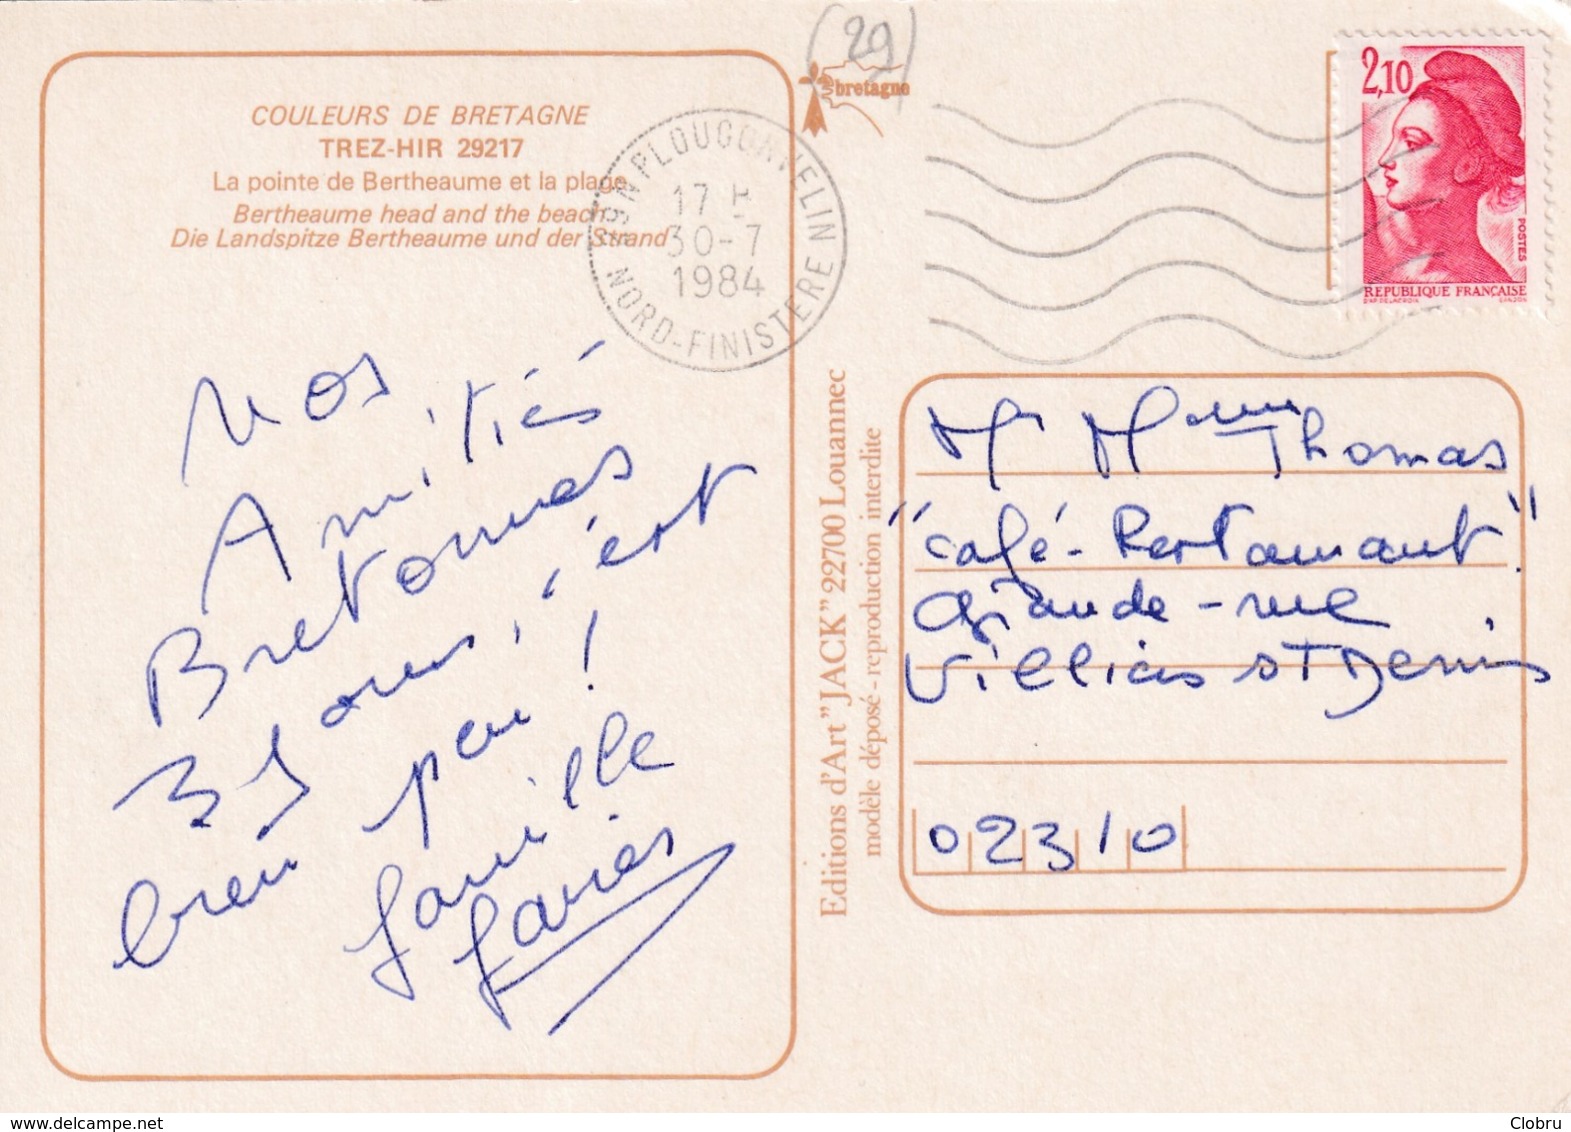 (29)
bretagne
COULEURS DE BRETAGNE
TREZ-HIR 29217
La pointe de Bertheaume et la plage
Bertheaume head and the beach
Die Landspitze Bertheaume und der Strand
29N PLOUGONVELIN
17 H
30-7
1984
NORD-FINISTERE
2,10
POSTES
REPUBLIQUE FRANÇAISE
D'AP. DELACROIX GANDON
Nos
Amitiés
Bretonnes
3 jours, c'est
bien peu !
famille
Editions d'Art "JACK" 22700 Louannec
modèle déposé - reproduction interdite
Mr Mme Thomas
"Café-Restaurant"
Grande-rue
Villiers St Denis
02310
Clobru